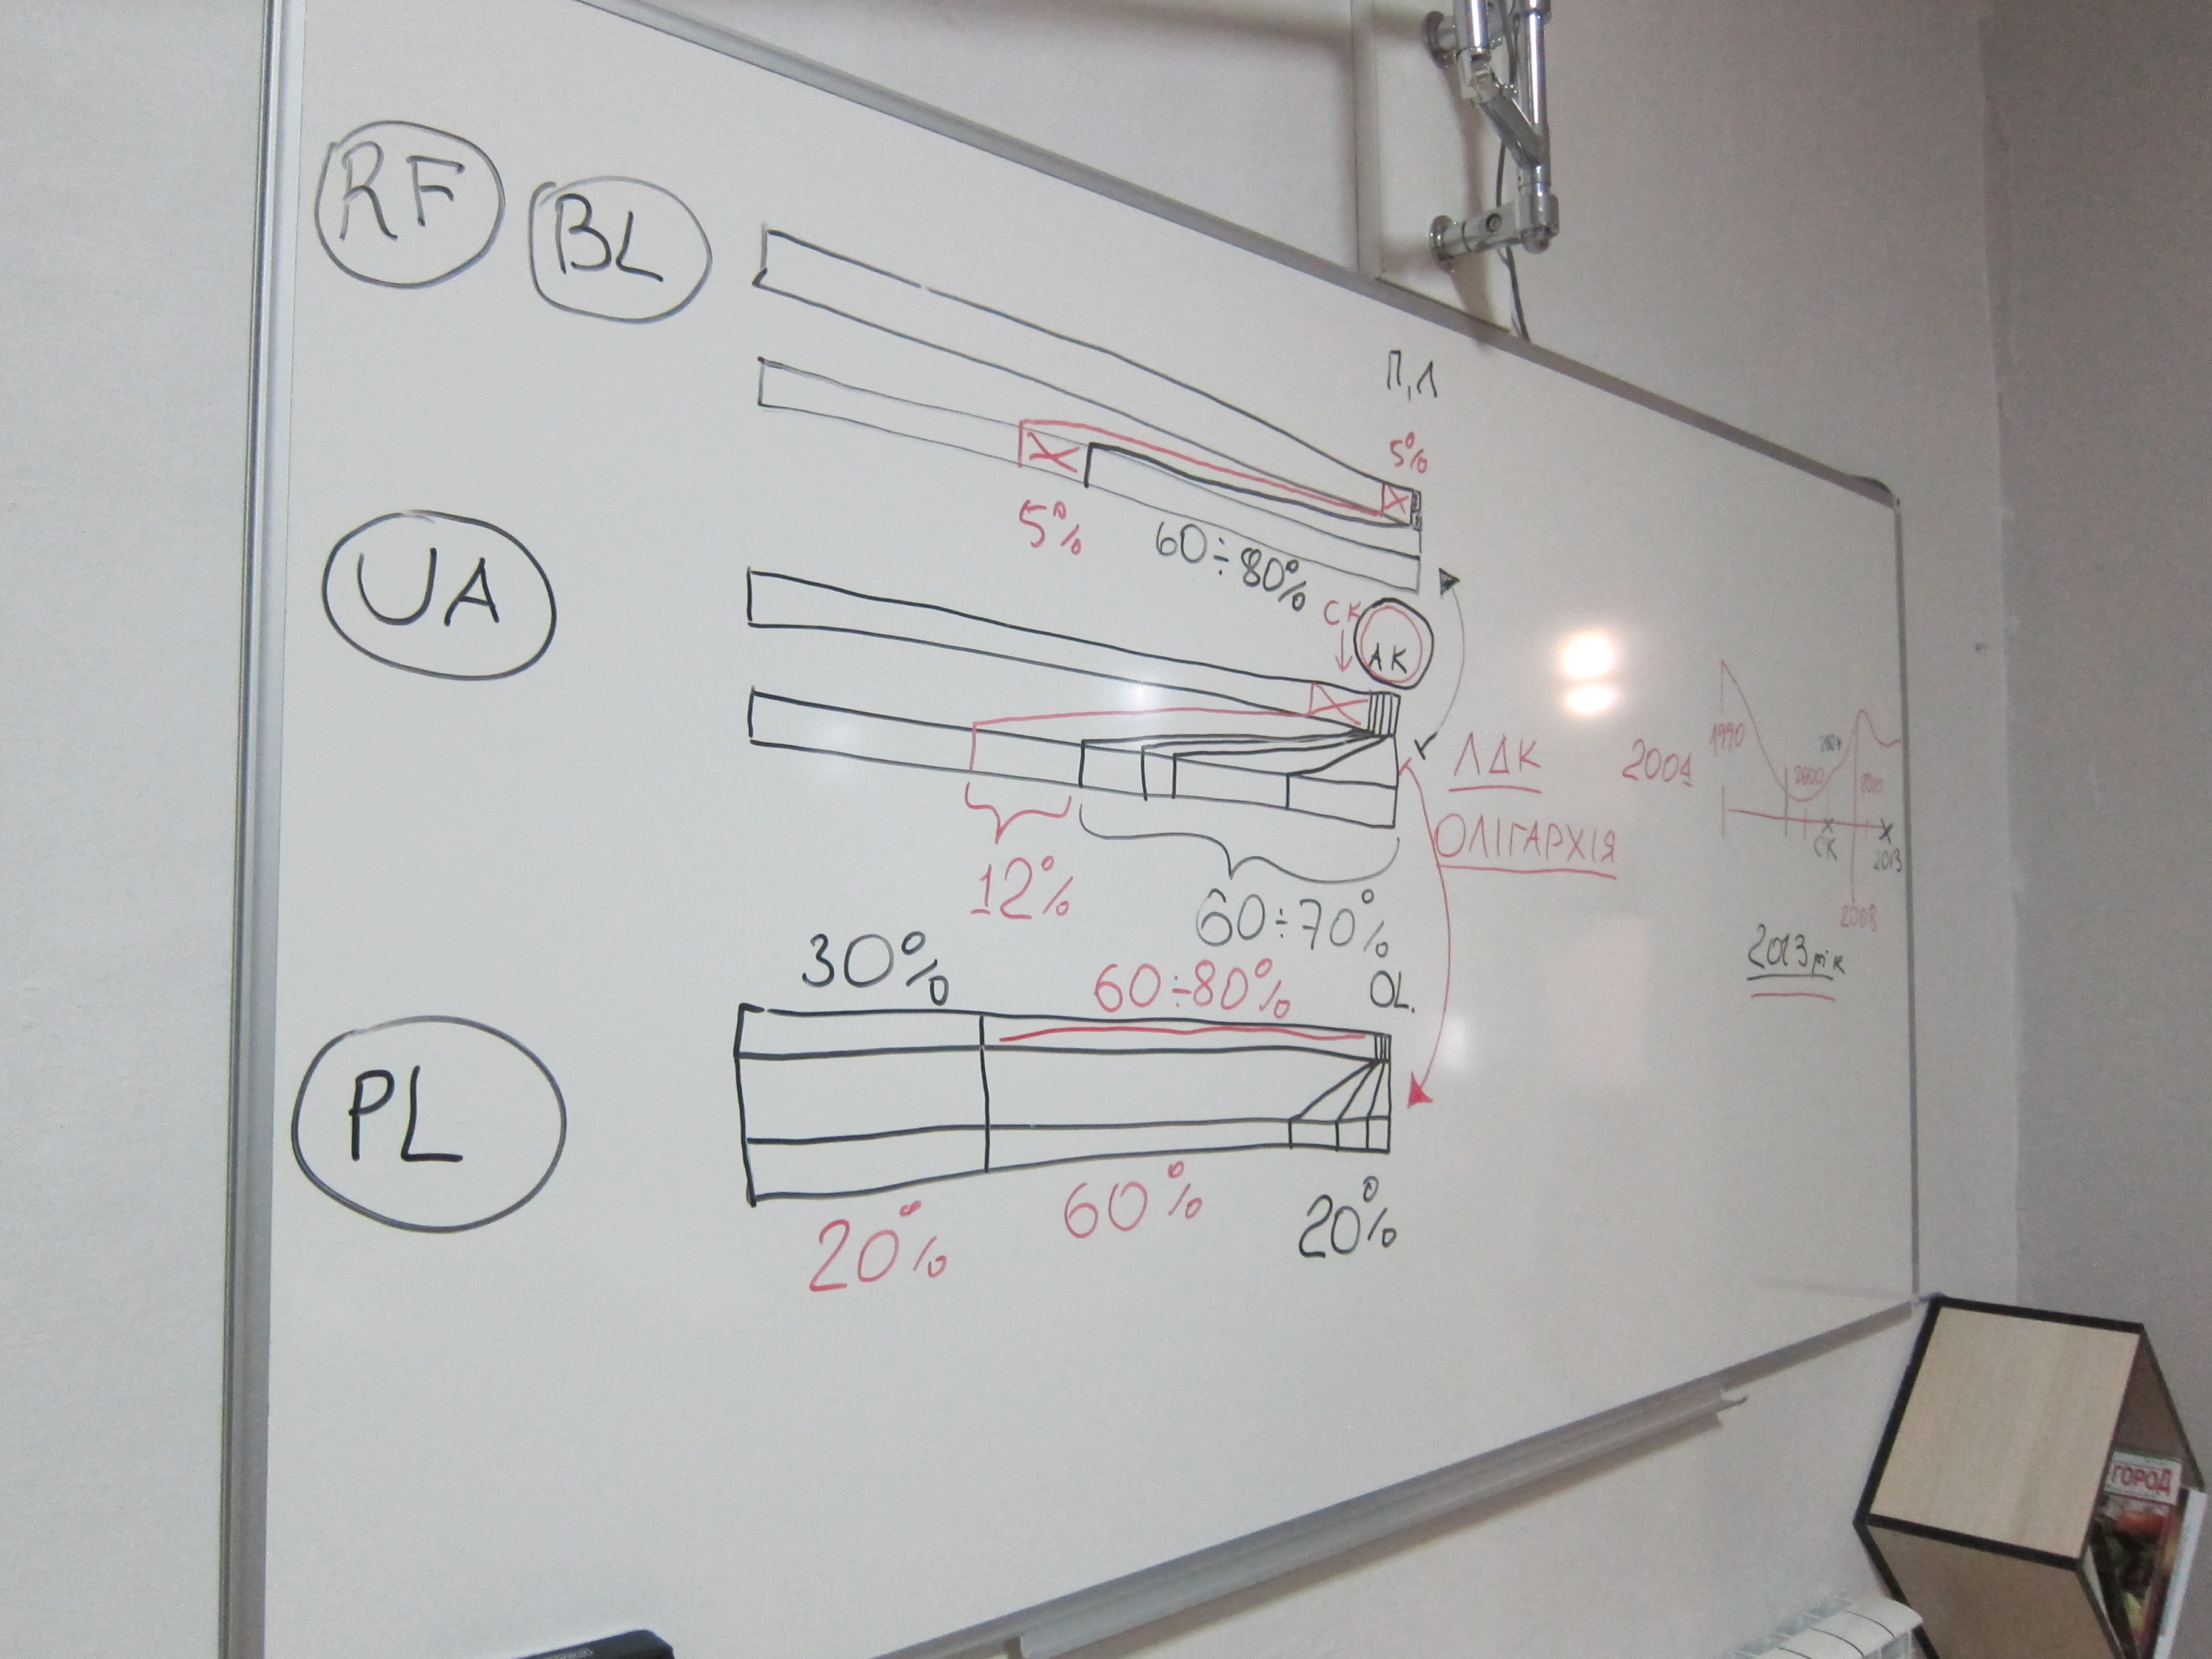 RF
BL
П,Л
5%
5%
60÷80%
UA
СК
АК
12%
60÷70%
ЛДК
ОЛІГАРХІЯ
2004
1990
2000
2004
2010
СК
2013
2008
2013 рік
30%
60÷80%
OL.
PL
20%
60%
20%
ГОРОД